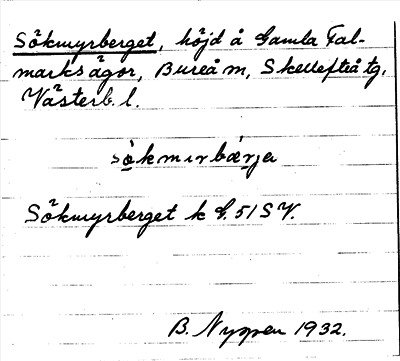 Sökmyrberget, höjd å Gamla Fal-
marks ägor, Bureå m, Skellefteå tg,
Västerb. l.
sòkmırbæ̀rjə
Sökmyrberget k G. 51 S V.
B. Nyspen 1932.